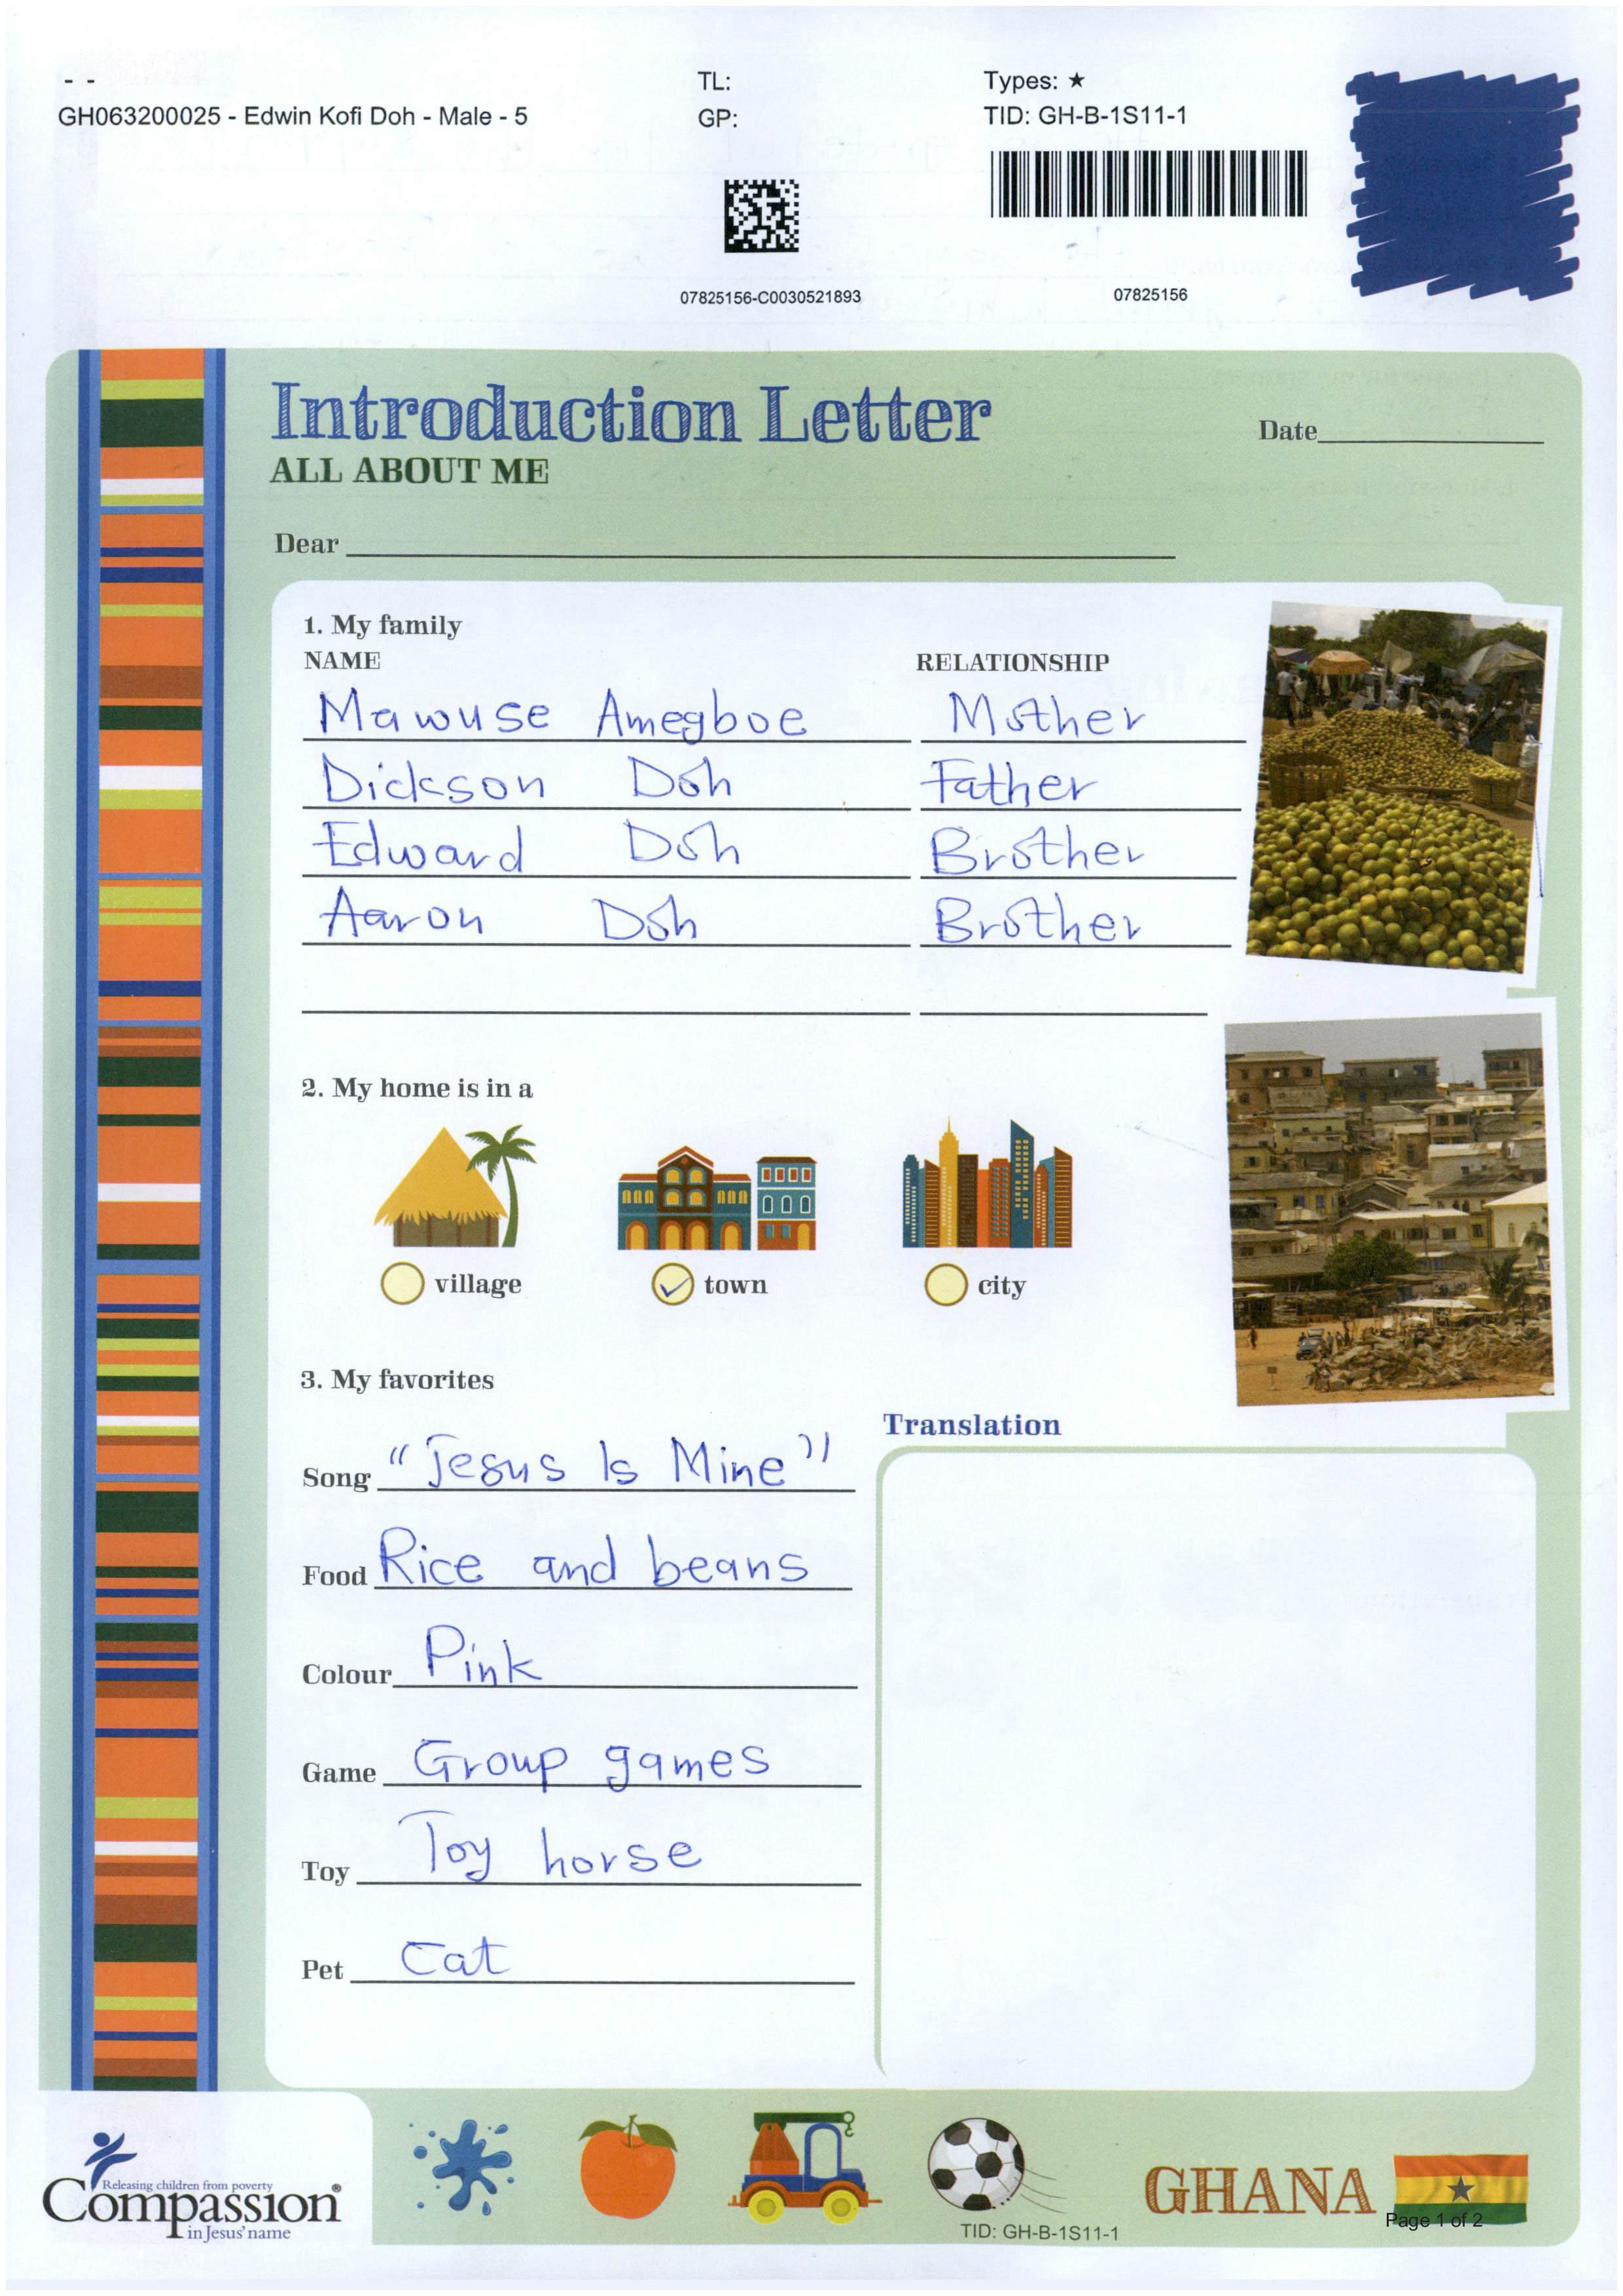 - -
GH063200025 - Edwin Kofi Doh - Male - 5
TL:
GP:
Types: ★
TID: GH-B-1S11-1
07825156-C0030521893
07825156
Introduction Letter
ALL ABOUT ME
Date
Dear
1. My family
NAME RELATIONSHIP
Mawuse Amegboe Mother
Dickson Doh Father
Edward Doh Brother
Aaron Doh Brother
2. My home is in a
village town city
3. My favorites
Song "Jesus Is Mine"
Food Rice and beans
Colour Pink
Game Group games
Toy Toy horse
Pet Cat
Translation
Releasing children from poverty
Compassion®
in Jesus' name
TID: GH-B-1S11-1
GHANA
Page 1 of 2